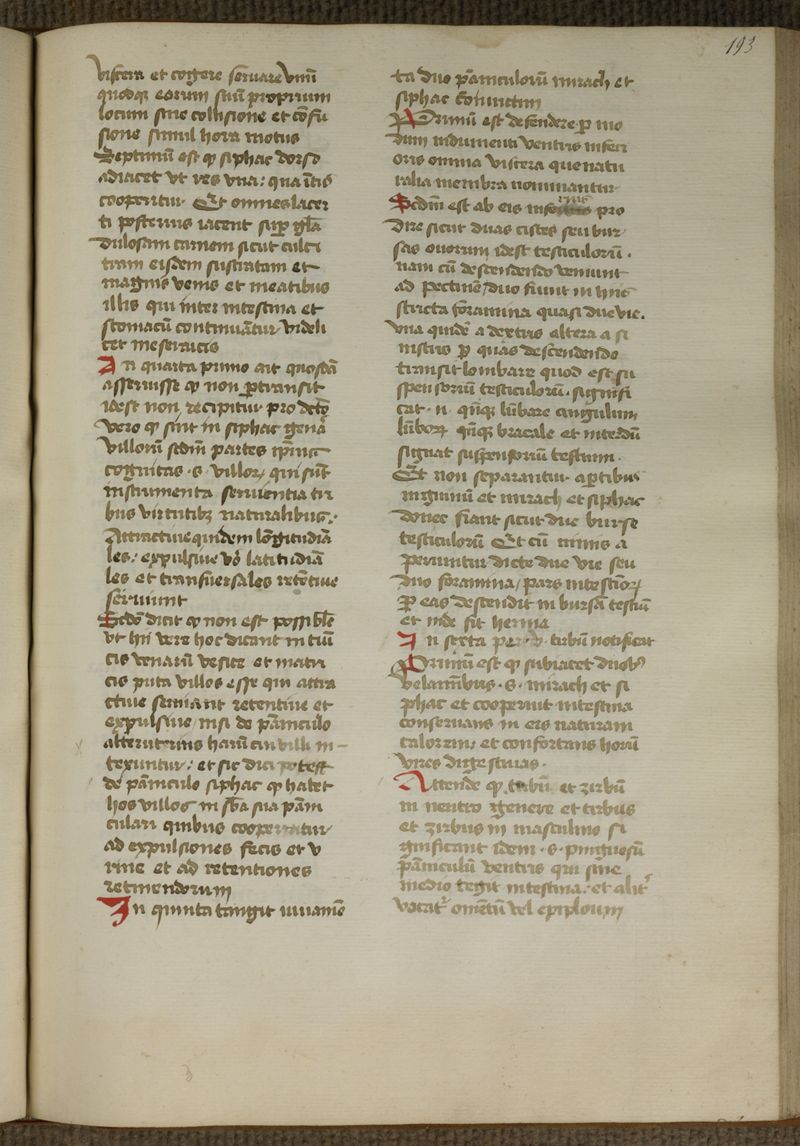 193
viscera et cogere seruare vnũ
quodqꝫ eorum suũ proprium
locum sine collisione et cõfu
sione simul hora motus
Septimũ est ꝙ siphac dorso
adiacet vt res vna: qua
cooperitur Et omnes lacer
ti posterius iacent suꝑ glã
dulosam carnem sicut culci
tram eisdem sustratam et
magnis venis et meatibus
illis qui inter intestina et
stomacũ continuãtur videli
cet meseraicis
In quarta primo ait quosdã
asseruisse ꝙ non ꝑtransit
idest non recipitur pro
vero ꝙ sint in siphac genã
villorũ scdm̃ partes
cognitas .s. villoꝝ qui sũt
instrumenta seruientia tri
bus virtutibꝫ naturalibus.
Attractiue quidem lõgitudiã
les: expulsiue vo latitudiã
les et transuersales retẽtiue
seruiunt
Scdõ dicit ꝙ non est possible
vt hii vere hoc dicant in tũi
cis venarũ vesice et matri
cis puta villos esse qui attra
ctiue seruiãt retentiue et
expulsiue nisi de pãniculo
alterutrius harũ villi in-
texuntur: et sic dici potest
de pãniculo siphac ꝙ habet
hos villos in sba sua pãni
culari quibus cooperiatur
ad expulsiones fecis et v
rine et ad retentiones
retinendorum
In quinta tangit iuuamẽ
ta duo pãniculorũ mirach et
siphac coniunctim
Primũ est defendere ꝑ mo
dum indumenti ventris inferi
oris omnia viscera que natu
ralia membra nominantur
Scdm̃ est ab eis pro
dire sicut duas cistes seu bur
sas ouorum idest testiculorũ.
nam cũ descendendo veniunt
ad pectinẽ duo fiunt in hinc
stricta foramina quasi due vie.
vna quidẽ a dextris altera a si
nistris ꝑ quas descendendo
transit lombare quod est su
spensorium testiculorũ. signifi
cat .n. qñqꝫ lũbare cingulum
lũboꝝ qñqꝫ bracale et interdũ
signat suspensoriũ testium.
Et non separantur a partibus
inguinũ et mirach et siphac
donec fiant sicut due burse
testiculorũ Et cũ nimis a
periuntur dicte due vie seu
duo foramina, pars intestinoꝝ
ꝑ eas descendit in bursã testiũ
et inde fit hernia
In sexta zirbũ notificat
Primũ est ꝙ subiacet duobꝰ
velamĩbus .s. mirach et si
phac et cooperiit intestina
conseruans in eis naturam
calorem, et confortans horũ
vires digestiuas.
Attende ꝙ et zirbũ
in neutro genere et tirbus
et zirbus in masculino si
gnificant idem .s. pinguosũ
pãniculũ ventris qui sine
medio tegit intestina. et alit̃
vocat̃ omẽtũ vel epiploum